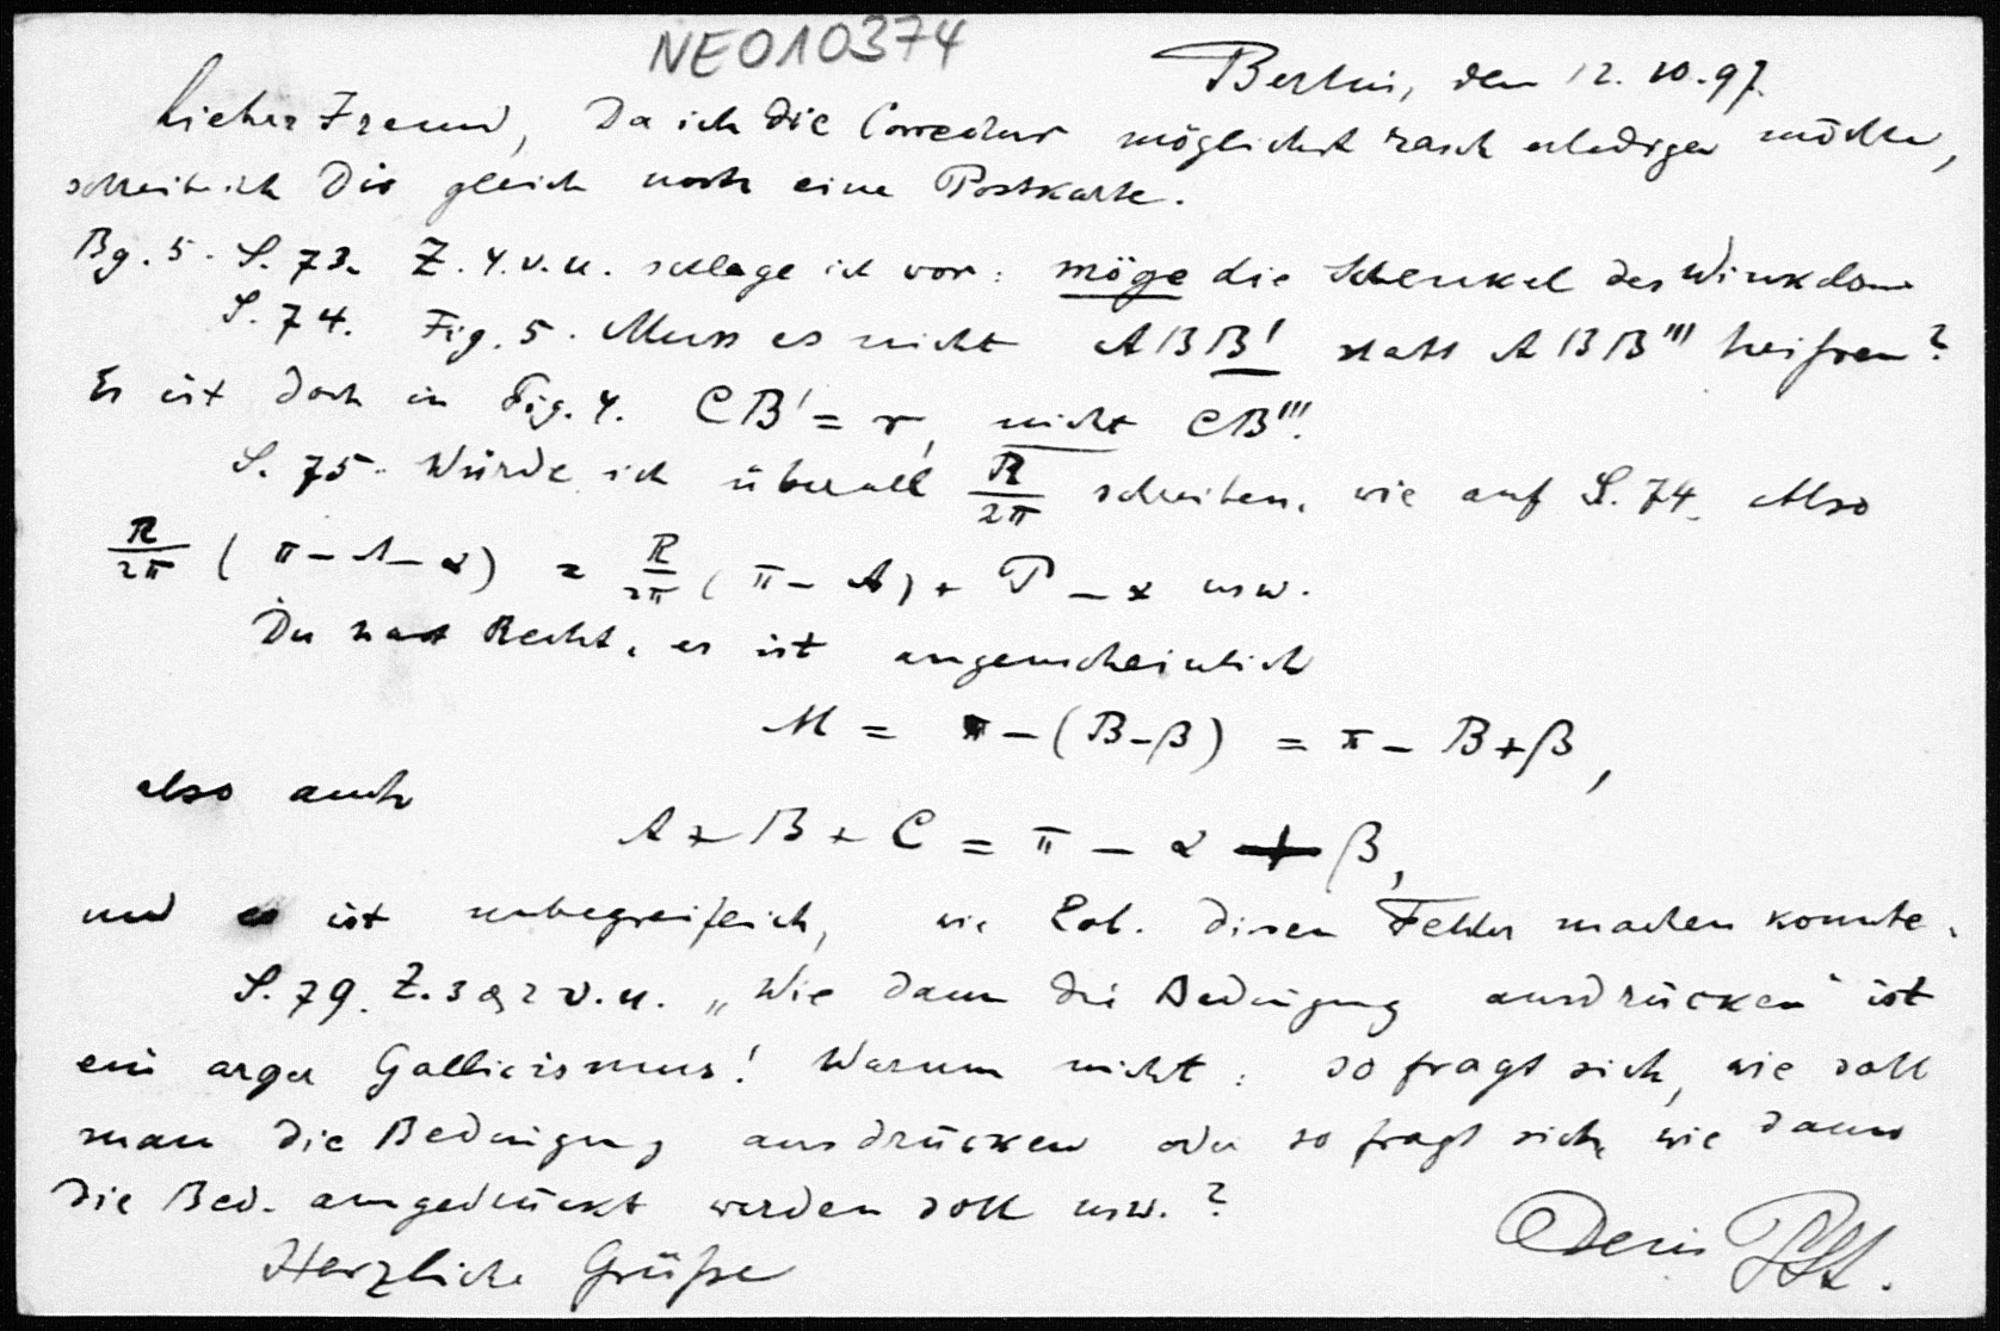 NE010374
Berlin, den 12.10.97.
Lieber Freund, Da ich die Correctur möglichst rasch erledigen möchte,
schreibe ich Dir gleich noch eine Postkarte.
Bg. 5. S. 73. Z. 4. v. u. schlage ich vor: möge die Schenkel des Winkels
S. 74. Fig. 5. Muss es nicht ABB' statt ABB''' heißen?
Es ist doch in Fig. 4. CB' = r, nicht CB'''.
S. 75. Würde ich überall R/2π schreiben, wie auf S. 74. Also
R/2π (π - A - α) = R/2π (π - A) + P - x usw.
Du hast Recht, es ist augenscheinlich
M = π - (B - β) = π - B + β,
also auch
A + B + C = π - α + β,
und es ist unbegreiflich, wie Lob. diesen Fehler machen konnte.
S. 79. Z. 3 & 2 v. u. „Wie dann die Bedingung ausdrücken“ ist
ein arger Gallicismus! Warum nicht: so fragt sich, wie soll
man die Bedingung ausdrücken oder so fragt sich, wie dann
die Bed. ausgedrückt werden soll usw.?
Herzliche Grüße
Dein PSt.